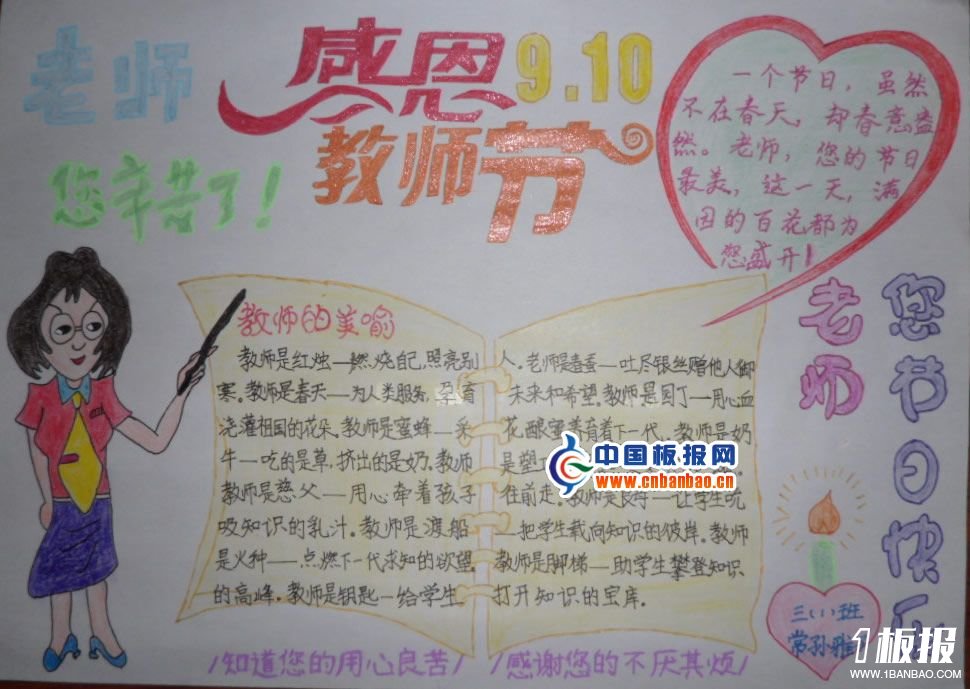 老师
您辛苦了!
感恩
9.10
教师节
一个节日，虽然
不在春天，却春意盎
然。老师，您的节日
最美，这一天，满
园的百花都为
您盛开！
老师
您节日快乐
教师的美喻
教师是红烛—燃烧自己,照亮别
寒。教师是春天—为人类服务,孕育
浇灌祖国的花朵。教师是蜜蜂—采
牛—吃的是草,挤出的是奶。教师
教师是慈父—用心牵着孩子
吸知识的乳汁。教师是渡船
是火种—点燃下一代求知的欲望
的高峰。教师是钥匙—给学生
人。老师是春蚕—吐尽银丝赠他人御
未来和希望。教师是园丁—用心血
花酿蜜养育着下一代。教师是奶
是塑
往前走。教师是良母—让学生吮
—把学生载向知识的彼岸。教师
教师是脚梯—助学生攀登知识
打开知识的宝库。
中国板报网
www.cnbanbao.cn
三(1)班
常孙雅
/知道您的用心良苦/
/感谢您的不厌其烦/
1板报
WWW.1BANBAO.COM